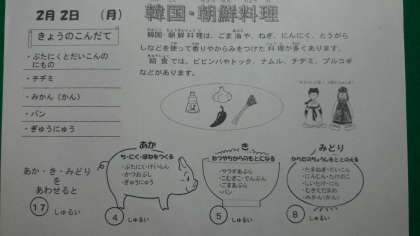 2月2日 (月)
韓国・朝鮮料理
きょうのこんだて
・ぶたにくとだいこんの
にもの
・チヂミ
・みかん(かん)
・パン
・ぎゅうにゅう
韓国・朝鮮料理は、ごま油や、ねぎ、にんにく、とうがら
しなどを使って香りやからみをつけた料理が多くあります。
給食では、ビビンバやトック、ナムル、チヂミ、プルコギ
などがあります。
あか・き・みどり
を
あわせると
17 しゅるい
あか
ち・にく・ほねをつくる
・ぶたにく
・かつおぶし
・ぎゅうにゅう
4 しゅるい
き
ねつやちからのもとになる
・サラダあぶら
・こむぎこ・でんぷん
・ごまあぶら
・パン
5 しゅるい
みどり
からだのちょうしをととのえる
・たまねぎ・だいこん
・にんじん・たけのこ
・しいたけ・にら
・みかん(かん)
8 しゅるい